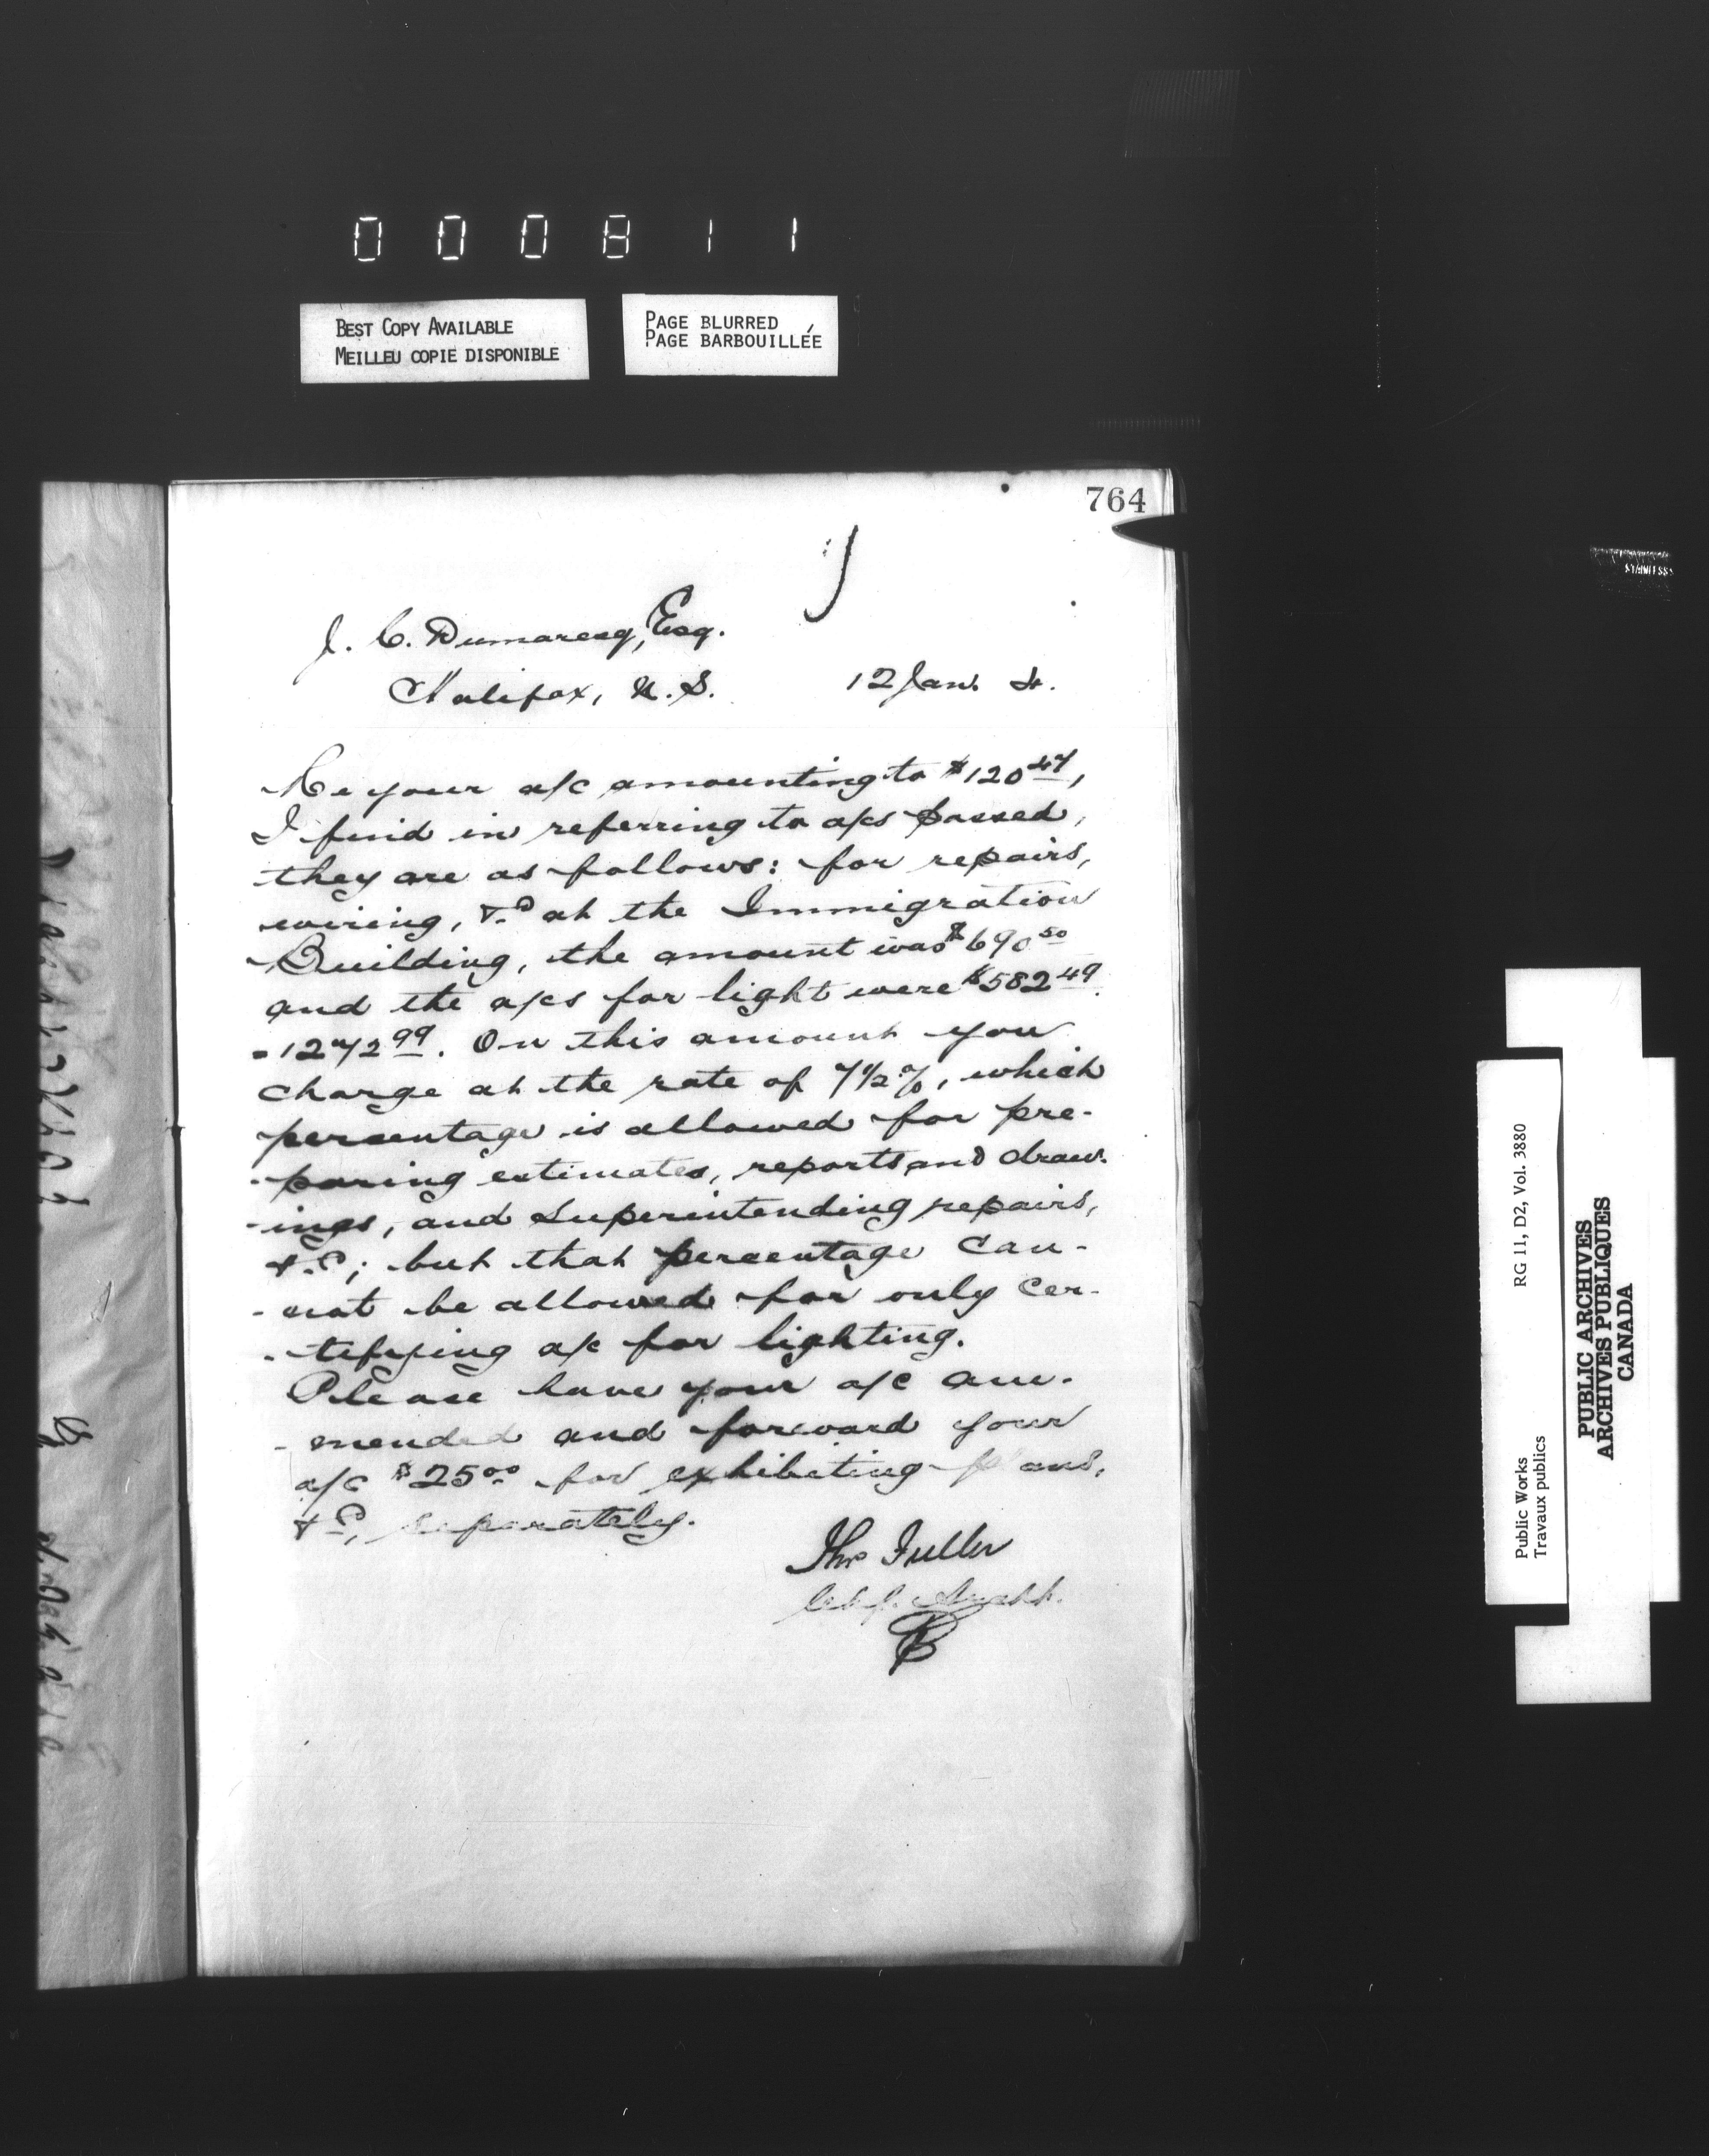 000811
BEST COPY AVAILABLE
MEILLEU COPIE DISPONIBLE
PAGE BLURRED
PAGE BARBOUILLÉE
764
J. C. Dumaresq, Esq.
Halifax, N. S. 12 Jan. 4.
Re your a/c amounting to $120 47,
I find in referring to a/cs passed,
they are as follows: for repairs,
wiring, &c at the Immigration
Building, the amount was $690 50
and the a/cs for light were $582 49.
= 1272 99. On this amount you
charge at the rate of 7 1/2 %, which
percentage is allowed for pre-
-paring estimates, reports and draw-
-ings, and superintending repairs,
&c; but that percentage can-
-not be allowed for only cer-
-tifying a/c for lighting.
Please have your a/c am-
-mended and forward your
a/c $25 00 for exhibiting plans,
&c, separately.
Thos Fuller
Chf. Archt.
STAINLESS
Public Works RG 11, D2, Vol. 3880
Travaux publics
PUBLIC ARCHIVES
ARCHIVES PUBLIQUES
CANADA